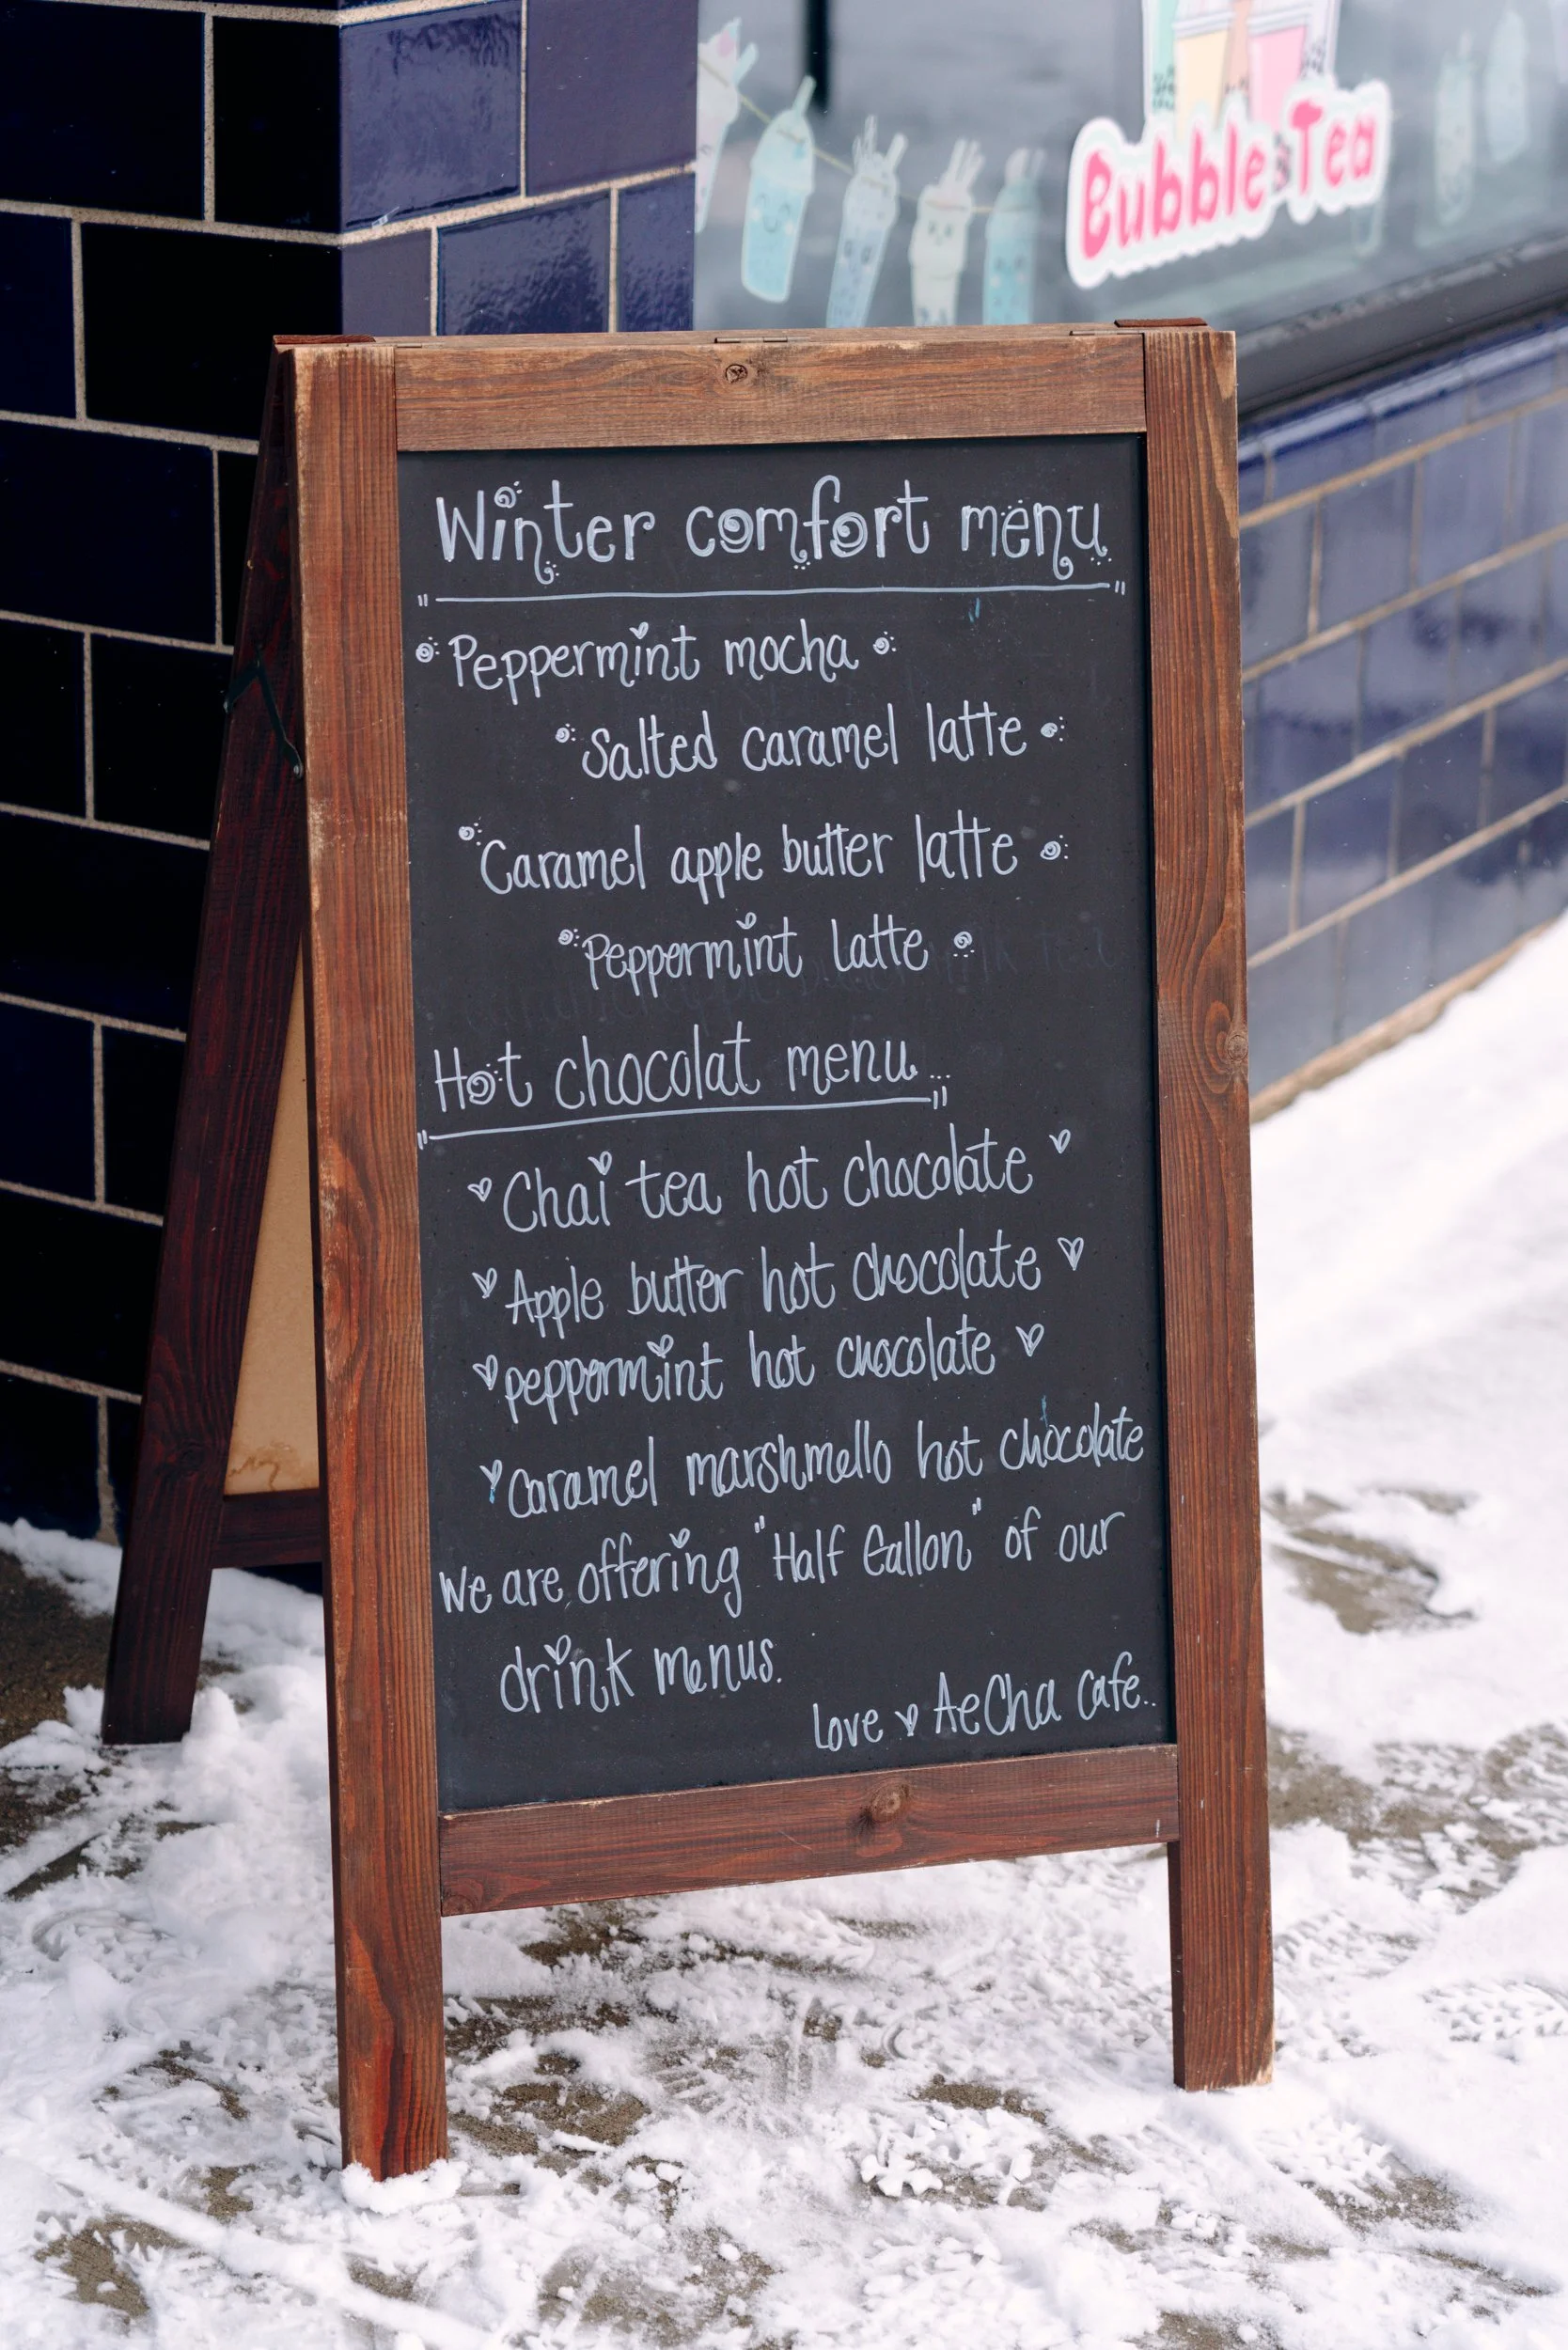 Bubble Tea
Winter comfort menu
Peppermint mocha
Salted caramel latte
Caramel apple butter latte
Peppermint latte
Hot chocolat menu...
Chai tea hot chocolate
Apple butter hot chocolate
peppermint hot chocolate
Caramel marshmello hot chocolate
We are offering "Half Gallon" of our
drink menus.
Love AeCha Cafe..